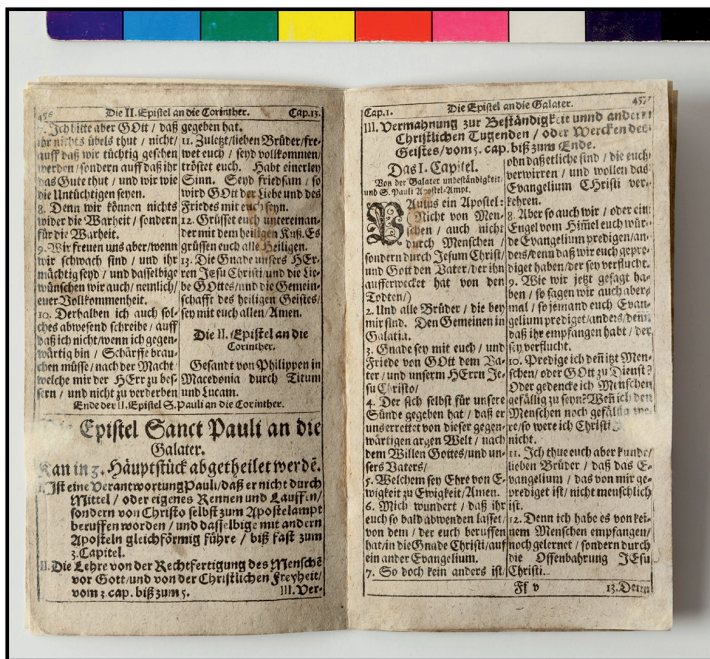 456
Die II. Epistel an die Corinther.
Cap.13.
7. Ich bitte aber GOtt / daß
ihr nichts übels thut / nicht /
auff daß wir tüchtig gesehen
werden / sondern auff daß ihr
das Gute thut / und wir wie
die Untüchtigen seyen.
8. Denn wir können nichts
wider die Warheit / sondern
für die Warheit.
9. Wir freuen uns aber / wenn
wir schwach sind / und ihr
mächtig seyd / und dasselbige
wünschen wir auch / nemlich /
euer Vollkommenheit.
10. Derhalben ich auch sol-
ches abwesend schreibe / auff
daß ich nicht / wenn ich gegen-
wärtig bin / Schärffe brau-
chen müsse / nach der Macht
welche mir der HErr zu bes-
sern / und nicht zu verderben
gegeben hat.
11. Zuletzt / lieben Brüder / fre-
wet euch / seyd vollkommen /
tröstet euch. Habt einerley
Sinn. Seyd friedsam / so
wird GOtt der Liebe und des
Friedes mit euch seyn.
12. Grüsset euch untereinan-
der mit dem heiligen Kuß. Es
grüssen euch alle Heiligen.
13. Die Gnade unsers HEr-
ren JEsu Christi / und die Lie-
be GOttes / und die Gemein-
schafft des heiligen Geistes /
sey mit euch allen / Amen.
Die II. Epistel an die
Corinther.
Gesandt von Philippen in
Macedonia durch Titum
und Lucam.
Ende der II. Epistel S. Pauli an die Corinther.
Die Epistel Sanct Pauli an die
Galater.
Kan in 3. Häuptstück abgetheilet werdē.
I. Ist eine Verantwortung Pauli / daß er nicht durch
Mittel / oder eigenes Rennen und Lauffen /
sondern von Christo selbst zum Apostelampt
beruffen worden / und dasselbige mit andern
Aposteln gleichförmig führe / biß fast zum
3. Capitel.
II. Die Lehre von der Rechtfertigung des Menschē
vor Gott / und von der Christlichen Freyheit /
vom 3. cap. biß zum 5.
III. Ver-
Cap.1.
Die Epistel an die Galater.
457
III. Vermahnung zur Beständigkeit unnd anderer
Christlichen Tugenden / oder Wercken des
Geistes / vom 5. cap. biß zum Ende.
Das I. Capitel.
Von der Galater unbeständigkeit /
und S. Pauli Apostel-Ampt.
PAulus ein Apostel:
Nicht von Men-
schen / auch nicht
durch Menschen /
sondern durch Jesum Christ /
und Gott den Vater / der ihn
aufferwecket hat von den
Todten /)
2. Und alle Brüder / die bey
mir sind. Den Gemeinen in
Galatia.
3. Gnade sey mit euch / und
Friede von GOtt dem Va-
ter / und unserm HErrn Je-
su Christo /
4. Der sich selbst für unsere
Sünde gegeben hat / daß er
uns errettet von dieser gegen-
wärtigen argen Welt / nach
dem Willen Gottes / und un-
sers Vaters /
5. Welchem sey Ehre von E-
wigkeit zu Ewigkeit / Amen.
6. Mich wundert / daß ihr
euch so bald abwenden lasset /
von dem / der euch beruffen
hat / in die Gnade Christi / auf
ein ander Evangelium.
7. So doch kein anders ist /
ohn daß etliche sind / die euch
verwirren / und wollen das
Evangelium CHristi ver-
kehren.
8. Aber so auch wir / oder ein
Engel vom Him̄el euch wür-
de Evangelium predigen / an-
ders / denn daß wir euch gepre-
diget haben / der sey verflucht.
9. Wie wir jetzt gesagt ha-
ben / so sagen wir auch aber-
mal / so jemand euch Evan-
gelium prediget / anders / denn
daß ihr empfangen habt / der
sey verflucht.
10. Predige ich deñ itzt Men-
schen / oder GOtt zu Dienst?
Oder gedencke ich Menschen
gefällig zu seyn? Weñ ich den
Menschen noch gefällig we-
re / so were ich Christi
nicht.
11. Ich thue euch aber kund /
lieben Brüder / daß das E-
vangelium / das von mir ge-
prediget ist / nicht menschlich
ist.
12. Denn ich habe es von kei-
nem Menschen empfangen /
noch gelernet / sondern durch
die Offenbahrung JEsu
Christi.
Ff v
13. Denn